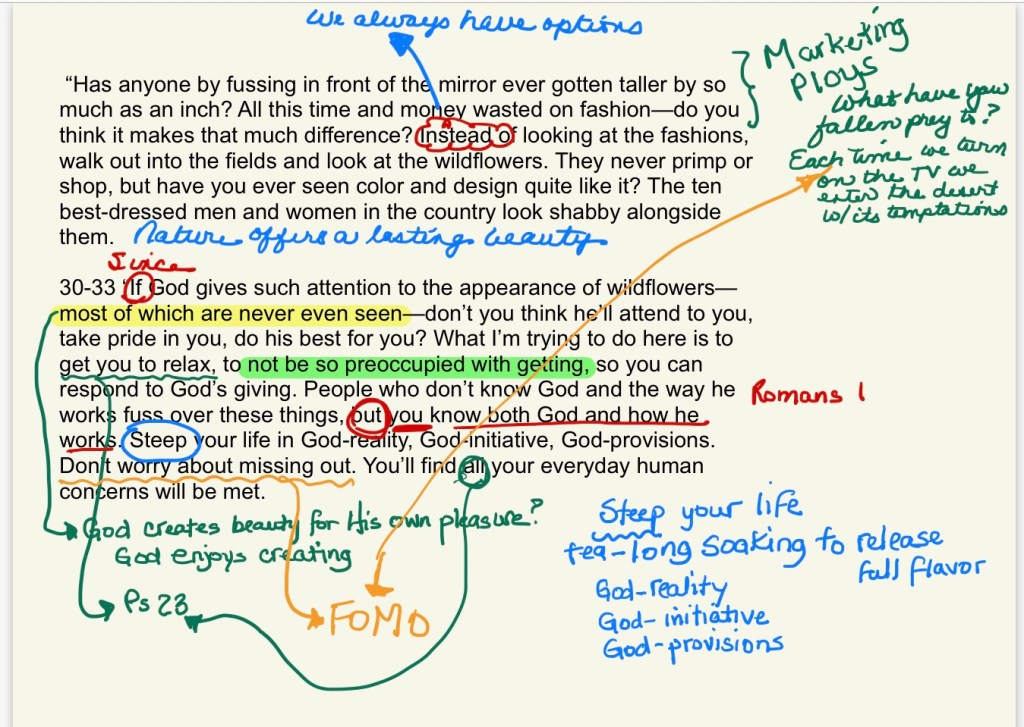 We always have options
Marketing
Ploys
What have you
fallen prey to?
Each time we turn
on the TV we
enter the desert
w/its temptations
“Has anyone by fussing in front of the mirror ever gotten taller by so
much as an inch? All this time and money wasted on fashion—do you
think it makes that much difference? Instead of looking at the fashions,
walk out into the fields and look at the wildflowers. They never primp or
shop, but have you ever seen color and design quite like it? The ten
best-dressed men and women in the country look shabby alongside
them.
Nature offers a lasting beauty
Since
30-33 “If God gives such attention to the appearance of wildflowers—
most of which are never even seen—don’t you think he’ll attend to you,
take pride in you, do his best for you? What I’m trying to do here is to
get you to relax, to not be so preoccupied with getting, so you can
respond to God’s giving. People who don’t know God and the way he
works fuss over these things, but you know both God and how he
works. Steep your life in God-reality, God-initiative, God-provisions.
Don’t worry about missing out. You’ll find all your everyday human
concerns will be met.
Romans 1
God creates beauty for His own pleasure?
God enjoys creating
Ps 23
FOMO
Steep your life
tea-long soaking to release
full flavor
God-reality
God-initiative
God-provisions